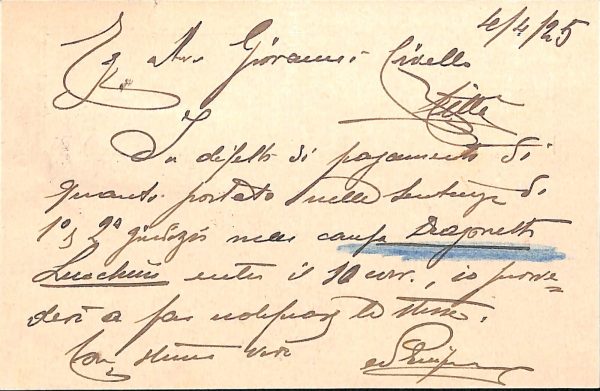 4/4/25
Eg. Avv. Giovanni Civello
Città
In difetto di pagamento di
quanto portato nelle sentenze di
1° e 2° giudizio nella causa Dragonetti
Lucchesi entro il 10 corr., io provve=
derò a far notificare le stesse.
Con stima